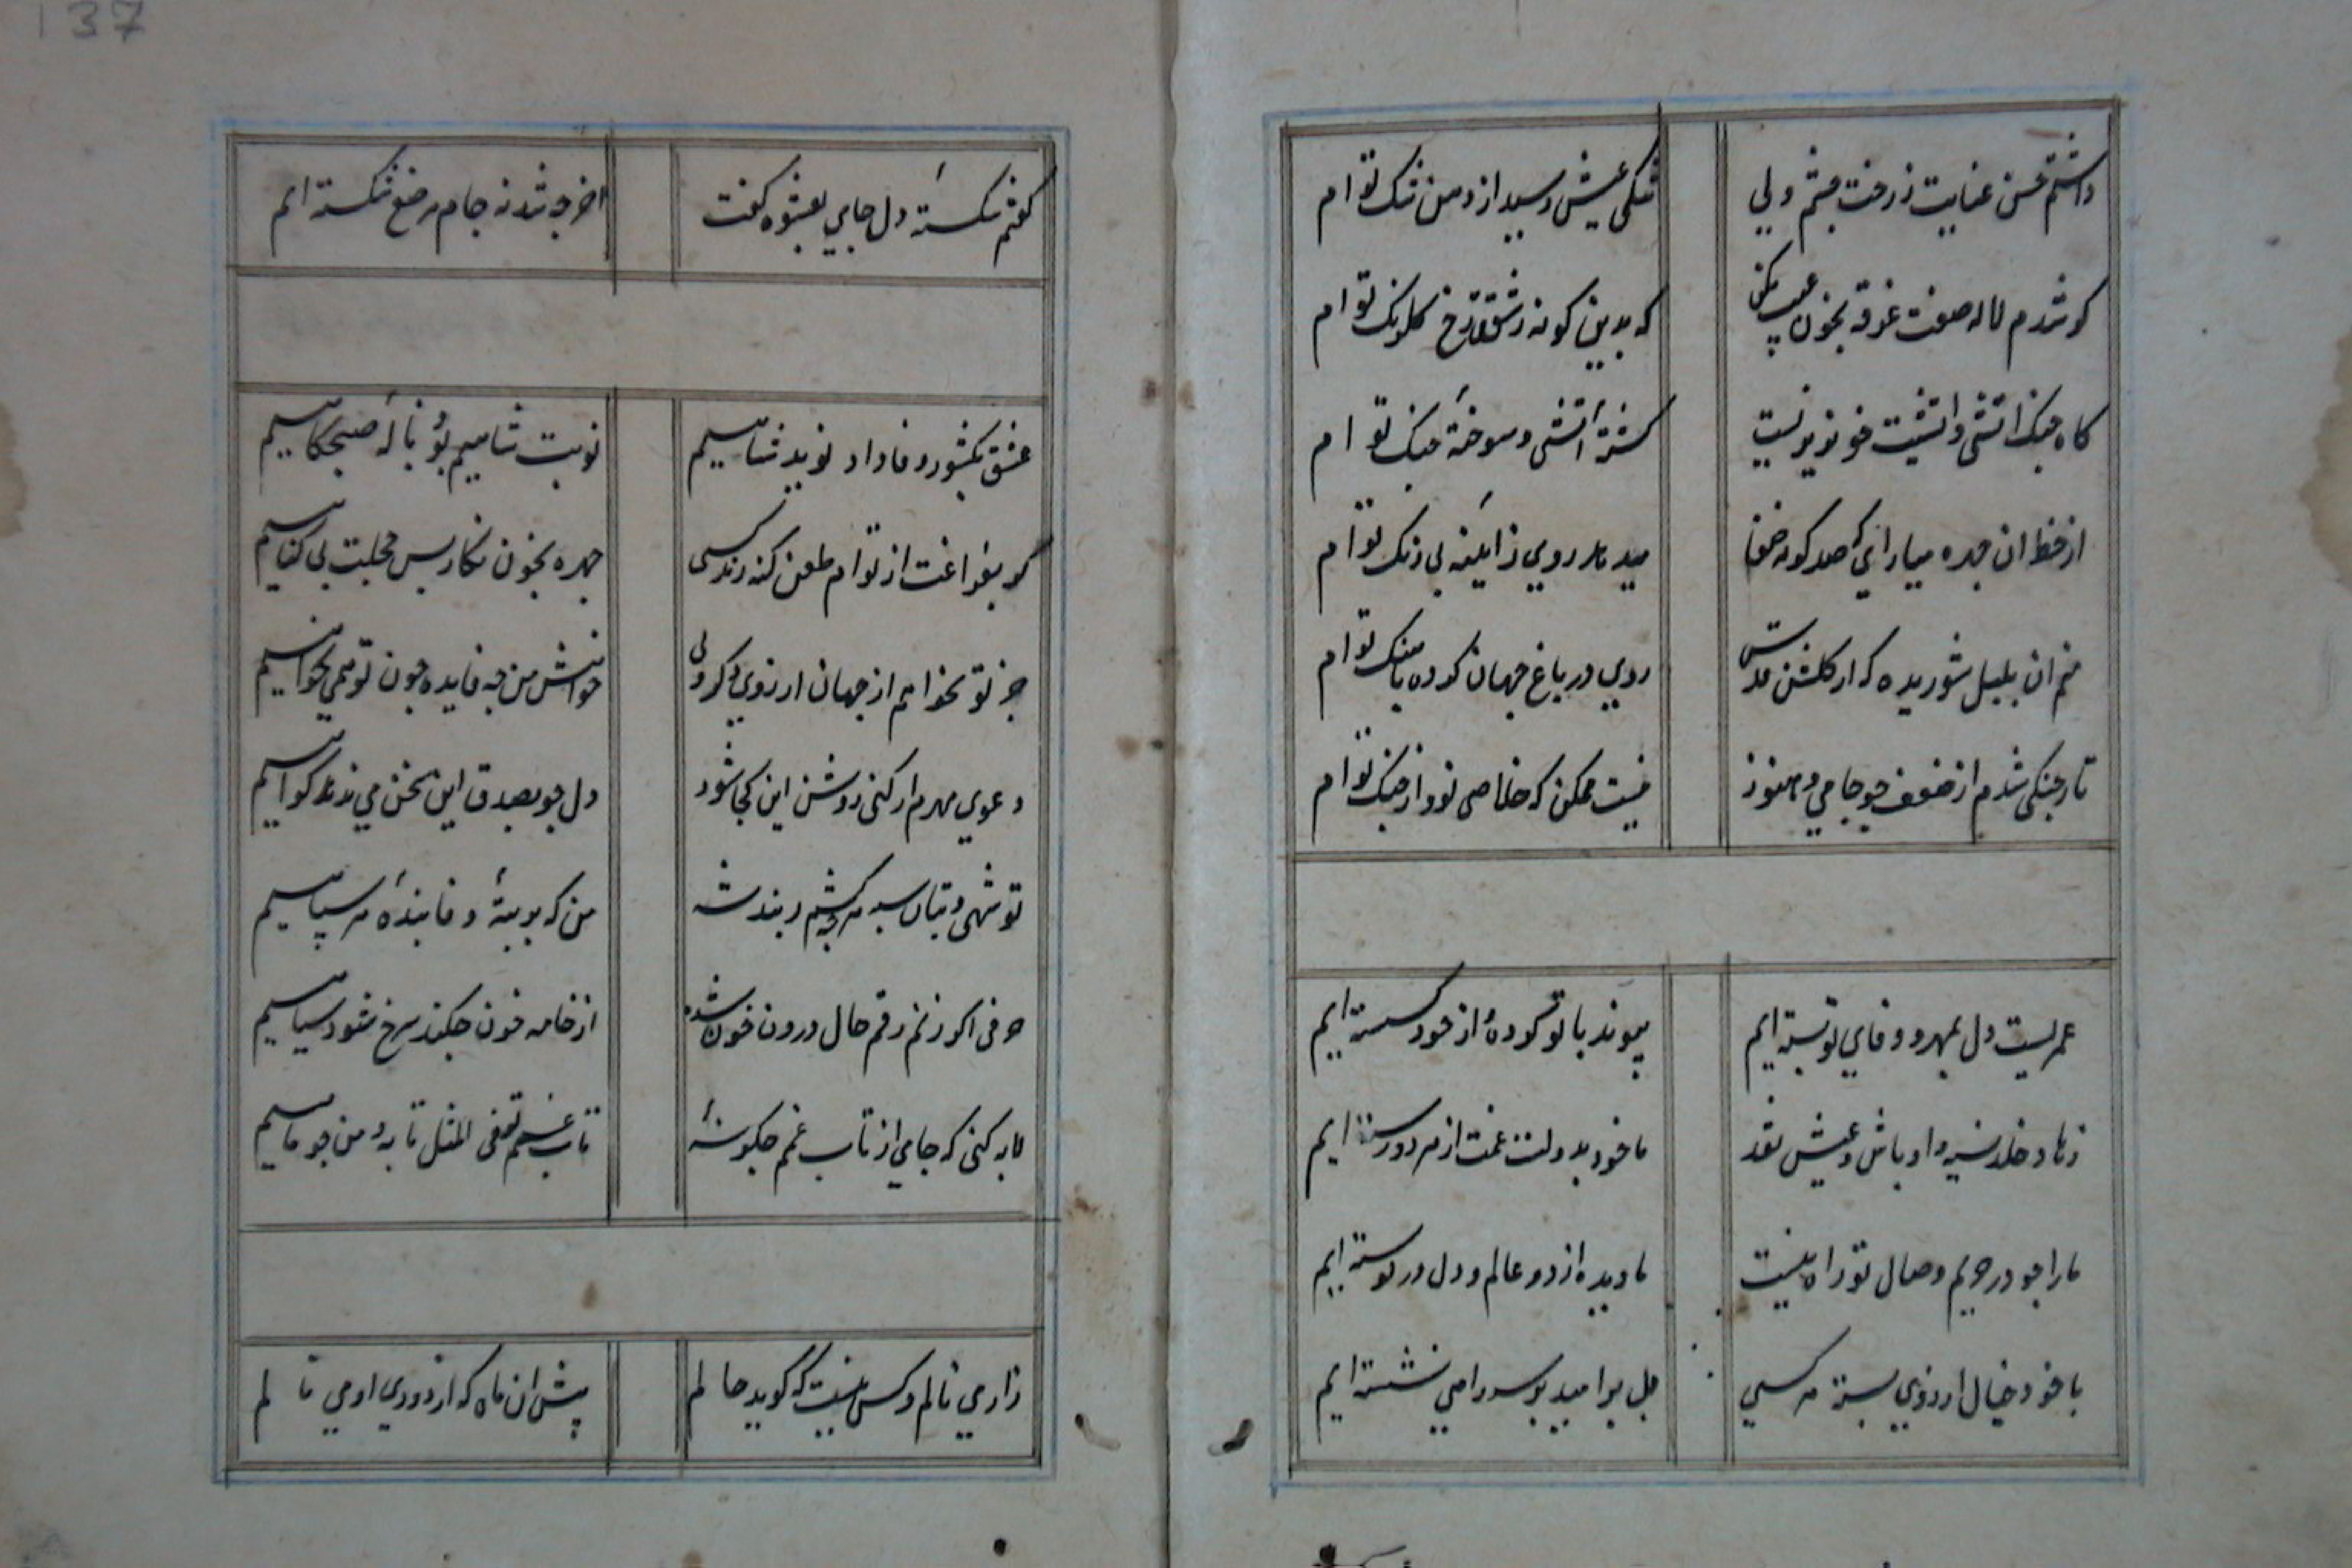 داشتم حسن عنایت ز رخت چشم ولی تنکی عیش رسید از دهن تنک توام
کو شدم لاله صفت غرقه بخون عیب مکن که بدین کونه ز شوق رخ کلرنک توام
کاه جنک اتشی و اتشیت خوی بد نیست کشتهٔ اشتی و سوختهٔ جنک توام
از خط ان چهره میارای که صد کونه صفا میدهد روی ز ایینهٔ بی زنک توام
منم ان بلبل شوریده که از کلشن قدس روی در باغ جهان کرده باهنک توام
تار چنکی شدم از ضعف چو جامی و هنوز نیست ممکن که خلاصی بود از چنک توام
عمریست دل بمهر و وفای تو بسته ایم پیوند با تو کرده و از خود کسسته ایم
زهاد و خلد نسیه و اوباش و عیش نقد ما خود بدولت غمت از هر دو رسته ایم
ما را چو در حریم وصال تو راه نیست ما دیده از دو عالم و دل در تو بسته ایم
با خود خیال ارزوی بسته هر کسی ما بر امید بر سر راهی نشسته ایم
137
کفتم شکستهٔ دل جامی بعشوه کفت اخر چه شد نه جام مرصع شکسته ایم
عشق بکشور وفا داد نوید شاهیم نوبت شاهیم بود نالهٔ صبحکاهیم
کر بفراغت از توام طعن کنند هر کسی چهره بخون نکار بس حجت بی کناهیم
جز تو نخواهم از جهان ارزوی دکر ولی خواهش من چه فایده چون تو نمی نخواهیم
دعوی مهرم ار کنی روشن این کجا شود دل چو بصدق این سخن می ندهد کواهیم
تو شهی و بتان سپه هر چه شدند من که بوم وفا بندهٔ هر سپاهیم
حرفی اکر زنم رقم حال درون خون شده از خامه خون چکد سرخ شود سیاهیم
لابه کنی که جامی از تاب غم چکونهٔ تاب غم تو فی المثل تابه و من چو ماهیم
زار می نالم و کس نیست که کوید حالم پیش ان ماه که از دوری او می نالم